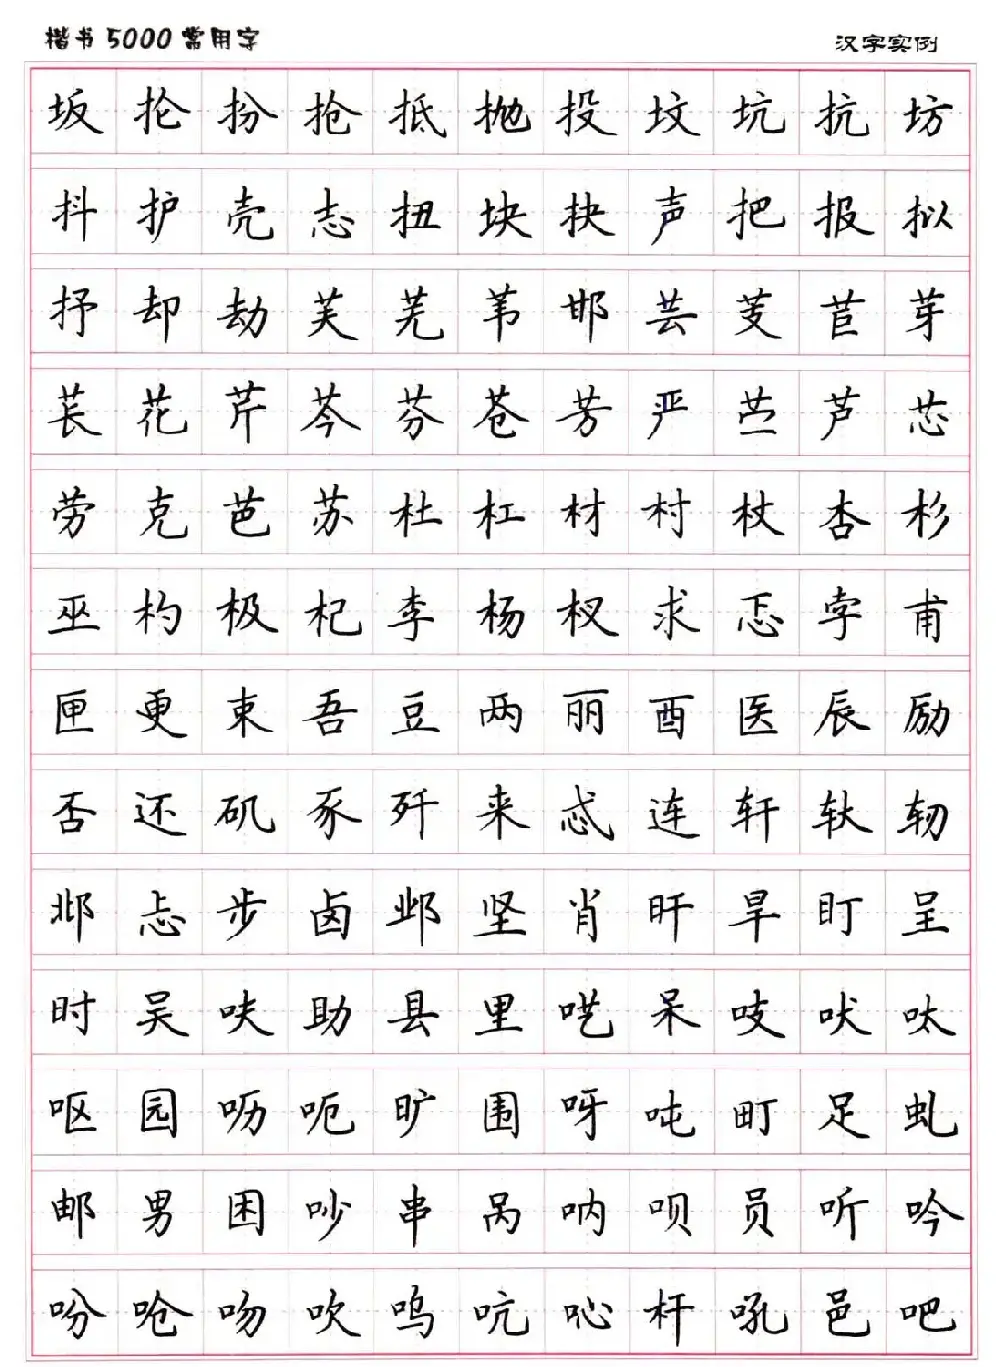 楷书5000常用字 汉字实例
坂抡扮抢抵抛投坟坑抗坊
抖护壳志扭块抉声把报拟
抒却劫芙芜苇邯芸芰苣芽
苌花芹芩芬苍芳严苎芦芯
劳克芭苏杜杠材村杖杏杉
巫杓极杞李杨杈求忑孛甫
匣更束吾豆两丽酉医辰励
否还矶豕歼来忒连轩轪轫
邶忐步卤邺坚肖旰旱盯呈
时吴呋助县里呓呆吱吠呔
呕园呖呃旷围呀吨町足虬
邮男困吵串呙呐呗员听吟
吩呛吻吹呜吭吣杆吼邑吧